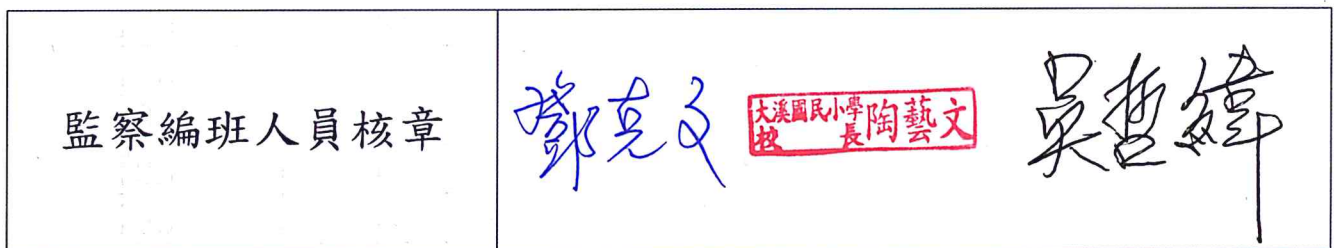 監察編班人員核章
鄧克文
大溪國民小學
校長
陶藝文
吳哲緯